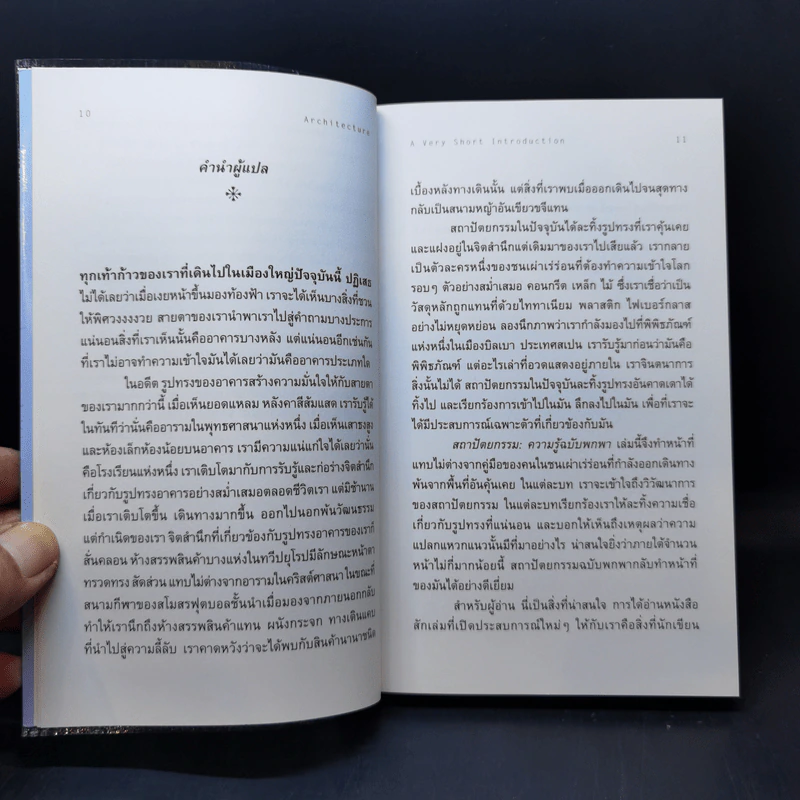 10
Architecture
คำนำผู้แปล
ทุกเท้าก้าวของเราที่เดินไปในเมืองใหญ่ปัจจุบันนี้ ปฏิเสธ
ไม่ได้เลยว่าเมื่อเงยหน้าขึ้นมองท้องฟ้า เราจะได้เห็นบางสิ่งที่ชวน
ให้พิศวงงงงวย สายตาของเรานำพาเราไปสู่คำถามบางประการ
แน่นอนสิ่งที่เราเห็นนั้นคืออาคารบางหลัง แต่แน่นอนอีกเช่นกัน
ที่เราไม่อาจทำความเข้าใจมันได้เลยว่ามันคืออาคารประเภทใด
ในอดีต รูปทรงของอาคารสร้างความมั่นใจให้กับสายตา
ของเรามากกว่านี้ เมื่อเห็นยอดแหลม หลังคาสีส้มแสด เรารับรู้ได้
ในทันทีว่านั่นคืออารามในพุทธศาสนาแห่งหนึ่ง เมื่อเห็นเสาธงสูง
และห้องเล็กห้องน้อยบนอาคาร เรามีความแน่แก่ใจได้เลยว่านั่น
คือโรงเรียนแห่งหนึ่ง เราเติบโตมากับการรับรู้และก่อร่างจิตสำนึก
เกี่ยวกับรูปทรงอาคารอย่างสม่ำเสมอตลอดชีวิตเรา แต่มิช้านาน
เมื่อเราเติบโตขึ้น เดินทางมากขึ้น ออกไปนอกพ้นวัฒนธรรม
แต่กำเนิดของเรา จิตสำนึกที่เกี่ยวข้องกับรูปทรงอาคารของเราก็
สั่นคลอน ห้างสรรพสินค้าบางแห่งในทวีปยุโรปมีลักษณะหน้าตา
ทรวดทรง สัดส่วน แทบไม่ต่างจากอารามในคริสต์ศาสนาในขณะที่
สนามกีฬาของสโมสรฟุตบอลชั้นนำเมื่อมองจากภายนอกกลับ
ทำให้เรานึกถึงห้างสรรพสินค้าแทน ผนังกระจก ทางเดินแคบ
ที่นำไปสู่ความลี้ลับ เราคาดหวังว่าจะได้พบกับสินค้านานาชนิด
A Very Short Introduction
11
เบื้องหลังทางเดินนั้น แต่สิ่งที่เราพบเมื่อออกเดินไปจนสุดทาง
กลับเป็นสนามหญ้าอันเขียวขจีแทน
สถาปัตยกรรมในปัจจุบันได้ละทิ้งรูปทรงที่เราคุ้นเคย
และแฝงอยู่ในจิตสำนึกแต่เดิมมาของเราไปเสียแล้ว เรากลาย
เป็นตัวละครหนึ่งของชนเผ่าเร่ร่อนที่ต้องทำความเข้าใจโลก
รอบๆ ตัวอย่างสม่ำเสมอ คอนกรีต เหล็ก ไม้ ซึ่งเราเชื่อว่าเป็น
วัสดุหลักถูกแทนที่ด้วยไททาเนียม พลาสติก ไฟเบอร์กลาส
อย่างไม่หยุดหย่อน ลองนึกภาพว่าเรากำลังมองไปที่พิพิธภัณฑ์
แห่งหนึ่งในเมืองบิลเบา ประเทศสเปน เรารับรู้มาก่อนว่ามันคือ
พิพิธภัณฑ์ แต่อะไรเล่าที่อวดแสดงอยู่ภายใน เราจินตนาการ
สิ่งนั้นไม่ได้ สถาปัตยกรรมในปัจจุบันละทิ้งรูปทรงอันคาดเดาได้
ทิ้งไป และเรียกร้องการเข้าไปในมัน ลึกลงไปในมัน เพื่อที่เราจะ
ได้มีประสบการณ์เฉพาะตัวที่เกี่ยวข้องกับมัน
สถาปัตยกรรม: ความรู้ฉบับพกพา เล่มนี้จึงทำหน้าที่
แทบไม่ต่างจากคู่มือของคนในชนเผ่าเร่ร่อนที่กำลังออกเดินทาง
พ้นจากพื้นที่อันคุ้นเคย ในแต่ละบท เราจะเข้าใจถึงวิวัฒนาการ
ของสถาปัตยกรรม ในแต่ละบทเรียกร้องเราให้ละทิ้งความเชื่อ
เกี่ยวกับรูปทรงที่แน่นอน และบอกให้เห็นถึงเหตุผลว่าความ
แปลกแหวกแนวนั้นมีที่มาอย่างไร น่าสนใจยิ่งว่าภายใต้จำนวน
หน้าไม่กี่มากน้อยนี้ สถาปัตยกรรมฉบับพกพากลับทำหน้าที่
ของมันได้อย่างดีเยี่ยม
สำหรับผู้อ่าน นี่เป็นสิ่งที่น่าสนใจ การได้อ่านหนังสือ
สักเล่มที่เปิดประสบการณ์ใหม่ๆ ให้กับเราคือสิ่งที่นักเขียน